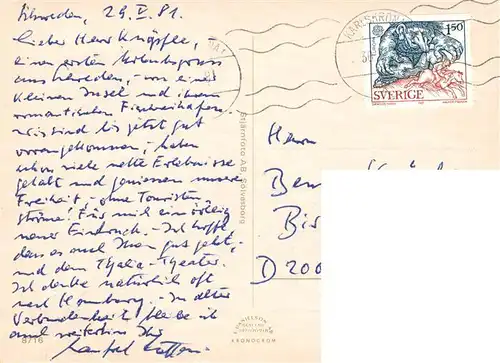 Schweden, 29.V.81.
Lieber Herr Knöpfle,
einen ersten Urlaubsgruss
aus Schweden, - von einer
kleinen Insel und ihrem
romantischen Fischereihafen.
Wir sind bis jetzt gut
vorangekommen, haben
schon viele nette Erlebnisse
gehabt und geniessen unsere
Freiheit, - ohne Touristen-
ströme! Für mich ein völlig
neuer Eindruck. - Ich hoffe,
dass es auch Ihnen gut geht, -
und dem Thalia-Theater.
Ich denke natürlich oft
nach Hamburg. - In alter
Verbundenheit bleibe ich
auch weiterhin Ihr
Manfred
8716
Stjärnfoto AB, Sölvesborg
KRONOGROM
KARLSKRONA
EUROPA
150
SVERIGE
Herrn
Bis
D 2000